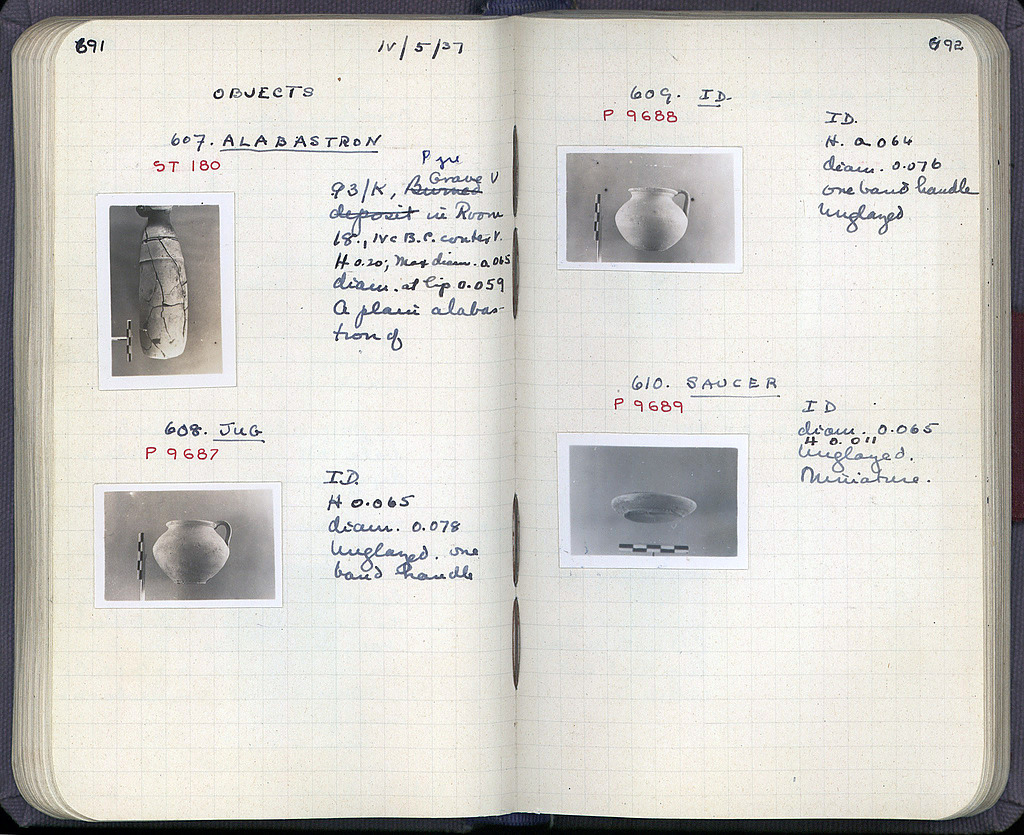 691
IV/5/37
OBJECTS
607. ALABASTRON
ST 180
Pyre
Grave V
93/K, Burned
deposit in Room
18., IV c B.C. context.
H 0.20; Max diam. 0.065
diam. at lip 0.059
A plain alabas-
tron of
608. JUG
P 9687
ID.
H 0.065
diam. 0.078
Unglazed. one
band handle
692
609. ID.
P 9688
ID.
H. 0.064
diam. 0.076
one band handle
Unglazed
610. SAUCER
P 9689
ID
diam. 0.065
H 0.011
Unglazed.
Miniature.